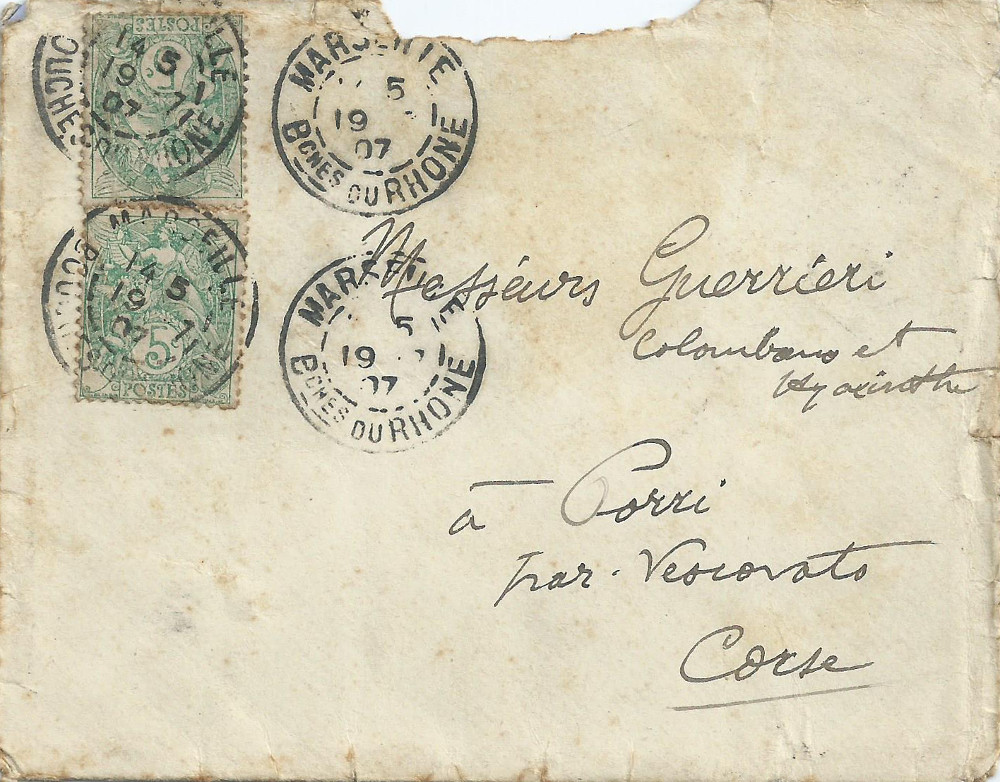 POSTES
5
14 5
19
07
MARSEILLE
5
19
07
BCHES DU RHONE
MARSEILLE
14 5
19
07
5
POSTES
MARSEILLE
5
19
07
BCHES DU RHONE
Messieurs Guerrieri
Colombano et
Hyacinthe
à Porri
par. Vescovato
Corse